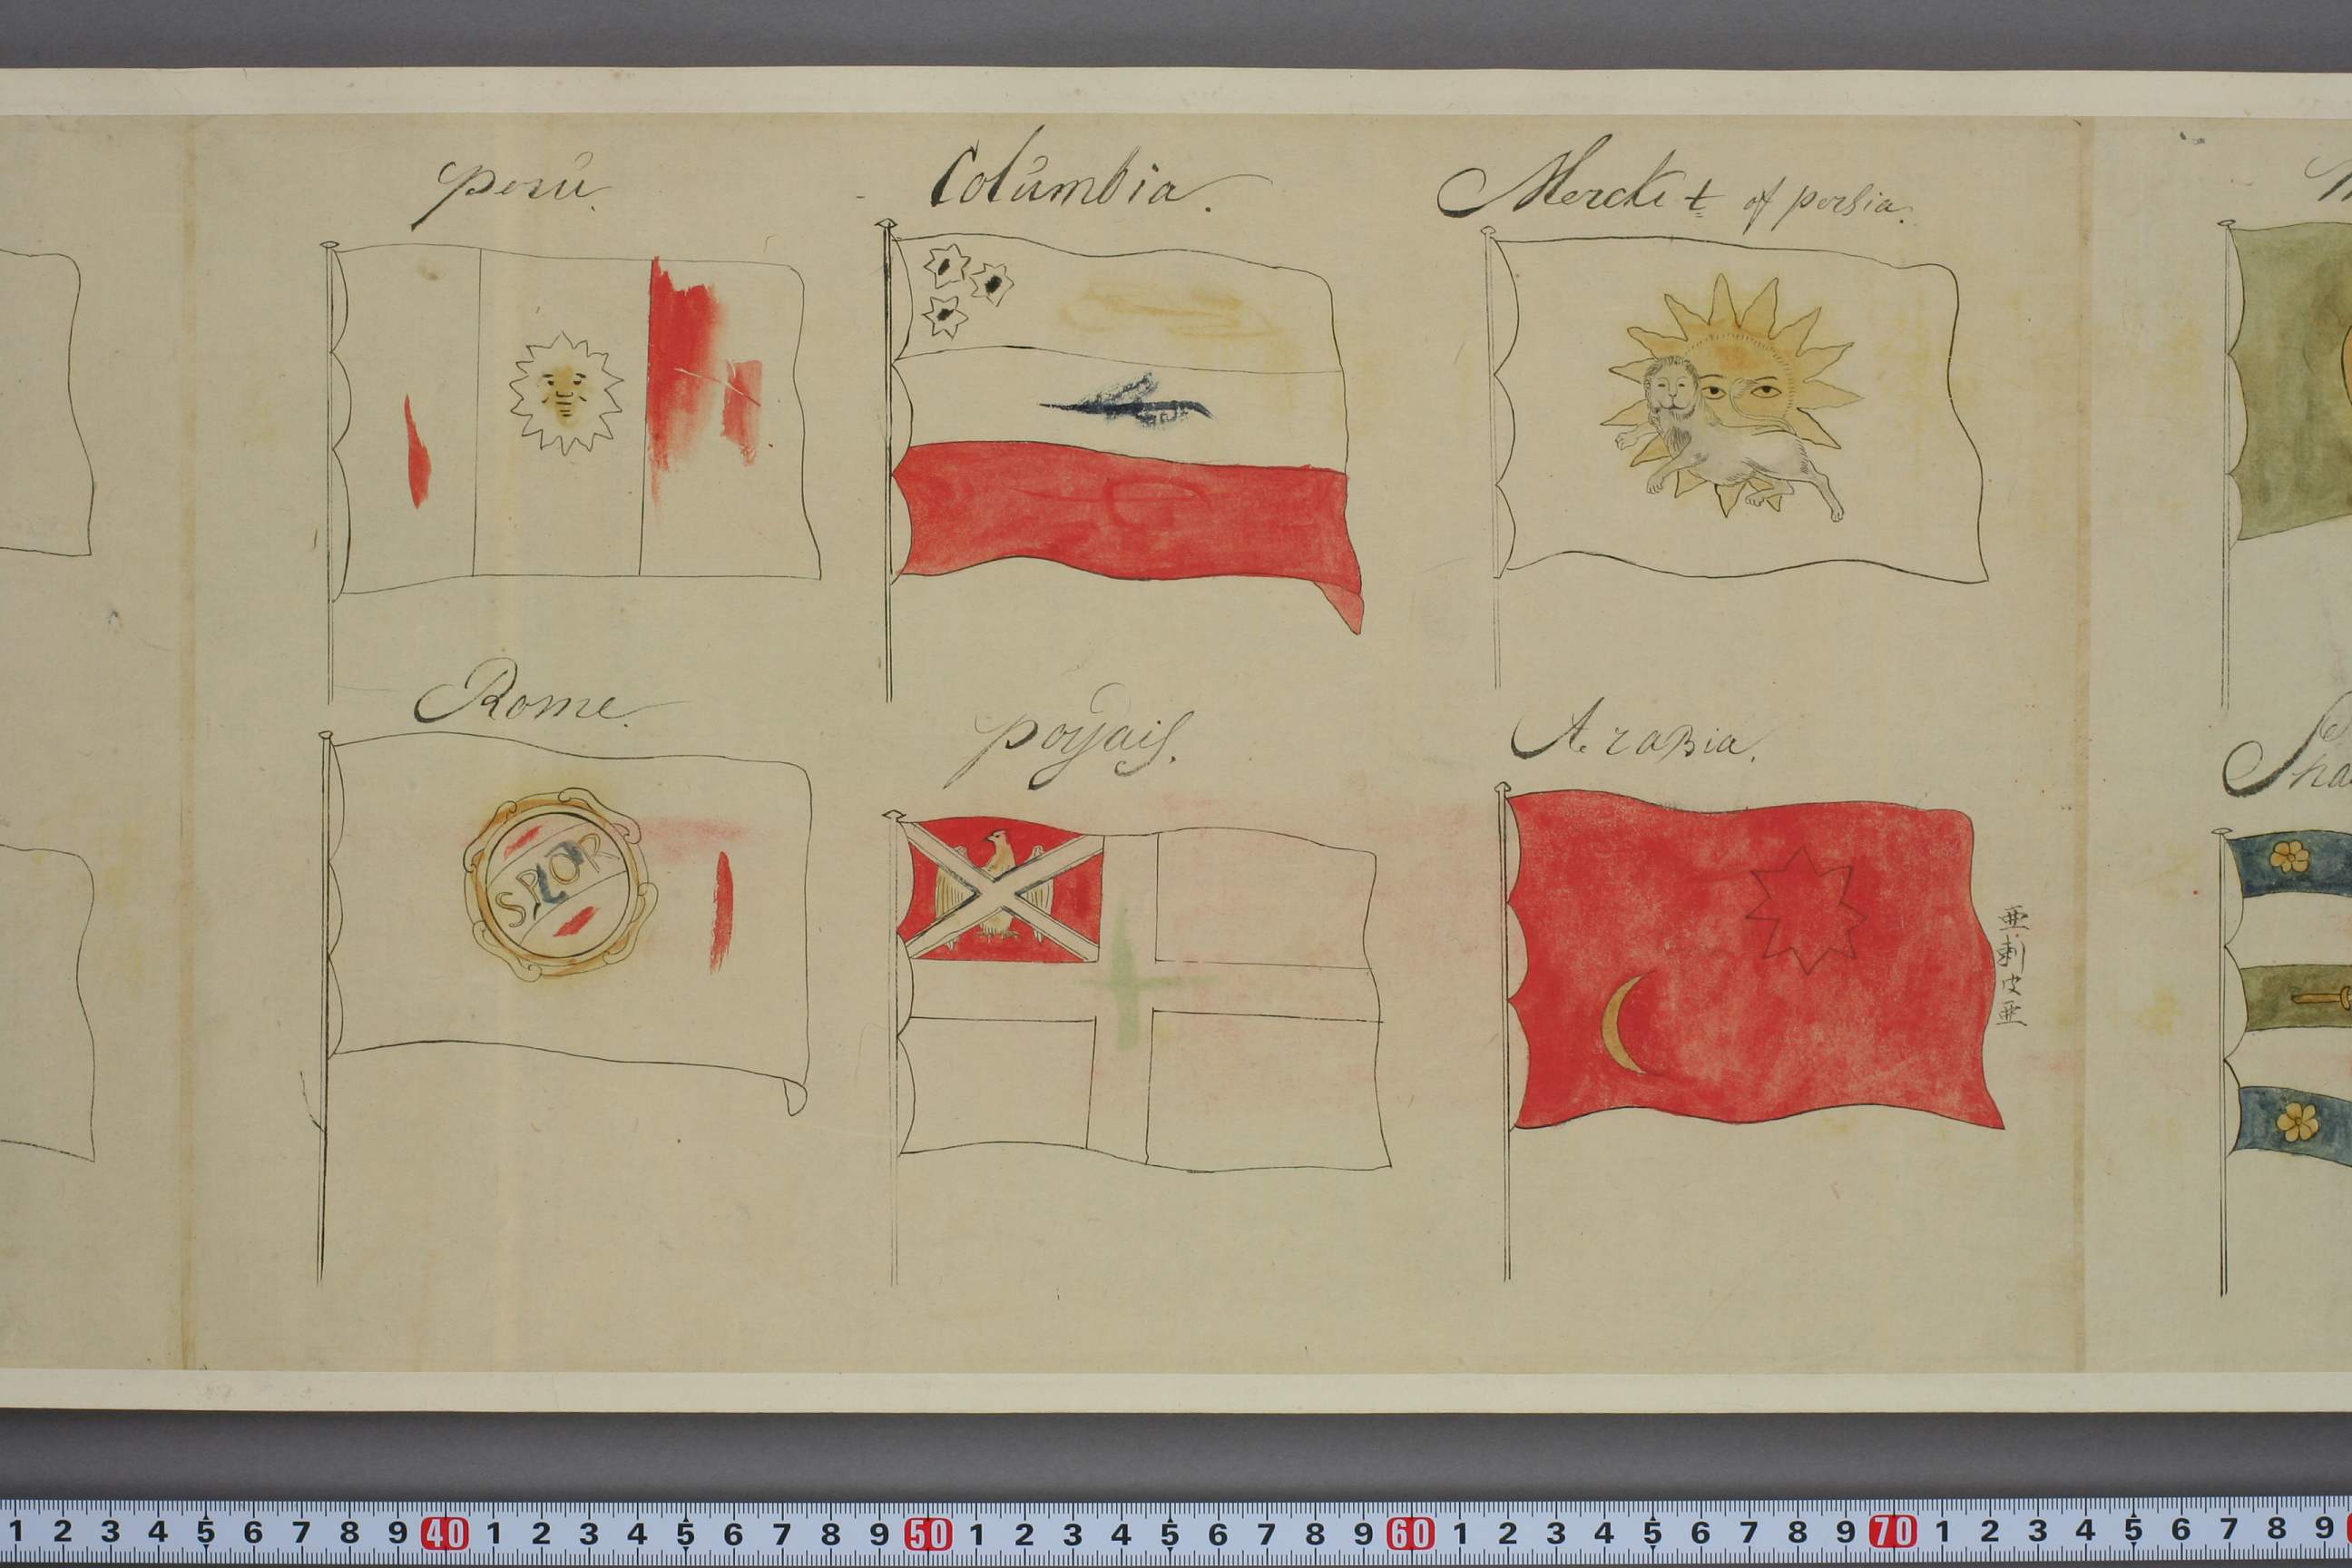 Perú.
Columbia.
Merckt of persia.
Rome.
SPQR
poÿais.
Arabia.
亜剌皮亜
Sha
1 2 3 4 5 6 7 8 9 40 1 2 3 4 5 6 7 8 9 50 1 2 3 4 5 6 7 8 9 60 1 2 3 4 5 6 7 8 9 70 1 2 3 4 5 6 7 8 9